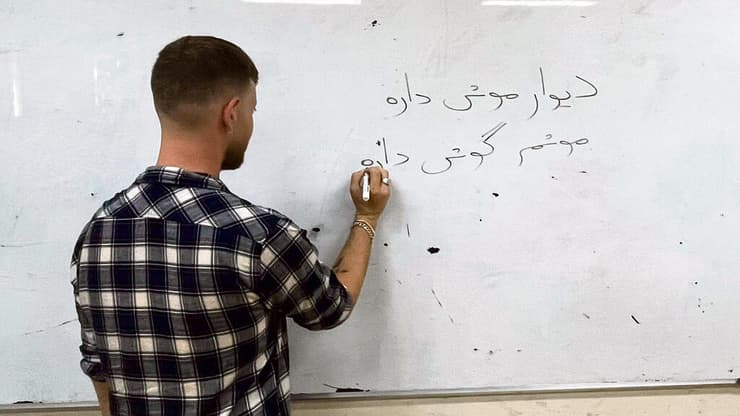 دیوار موش داره
موشم گوش داره